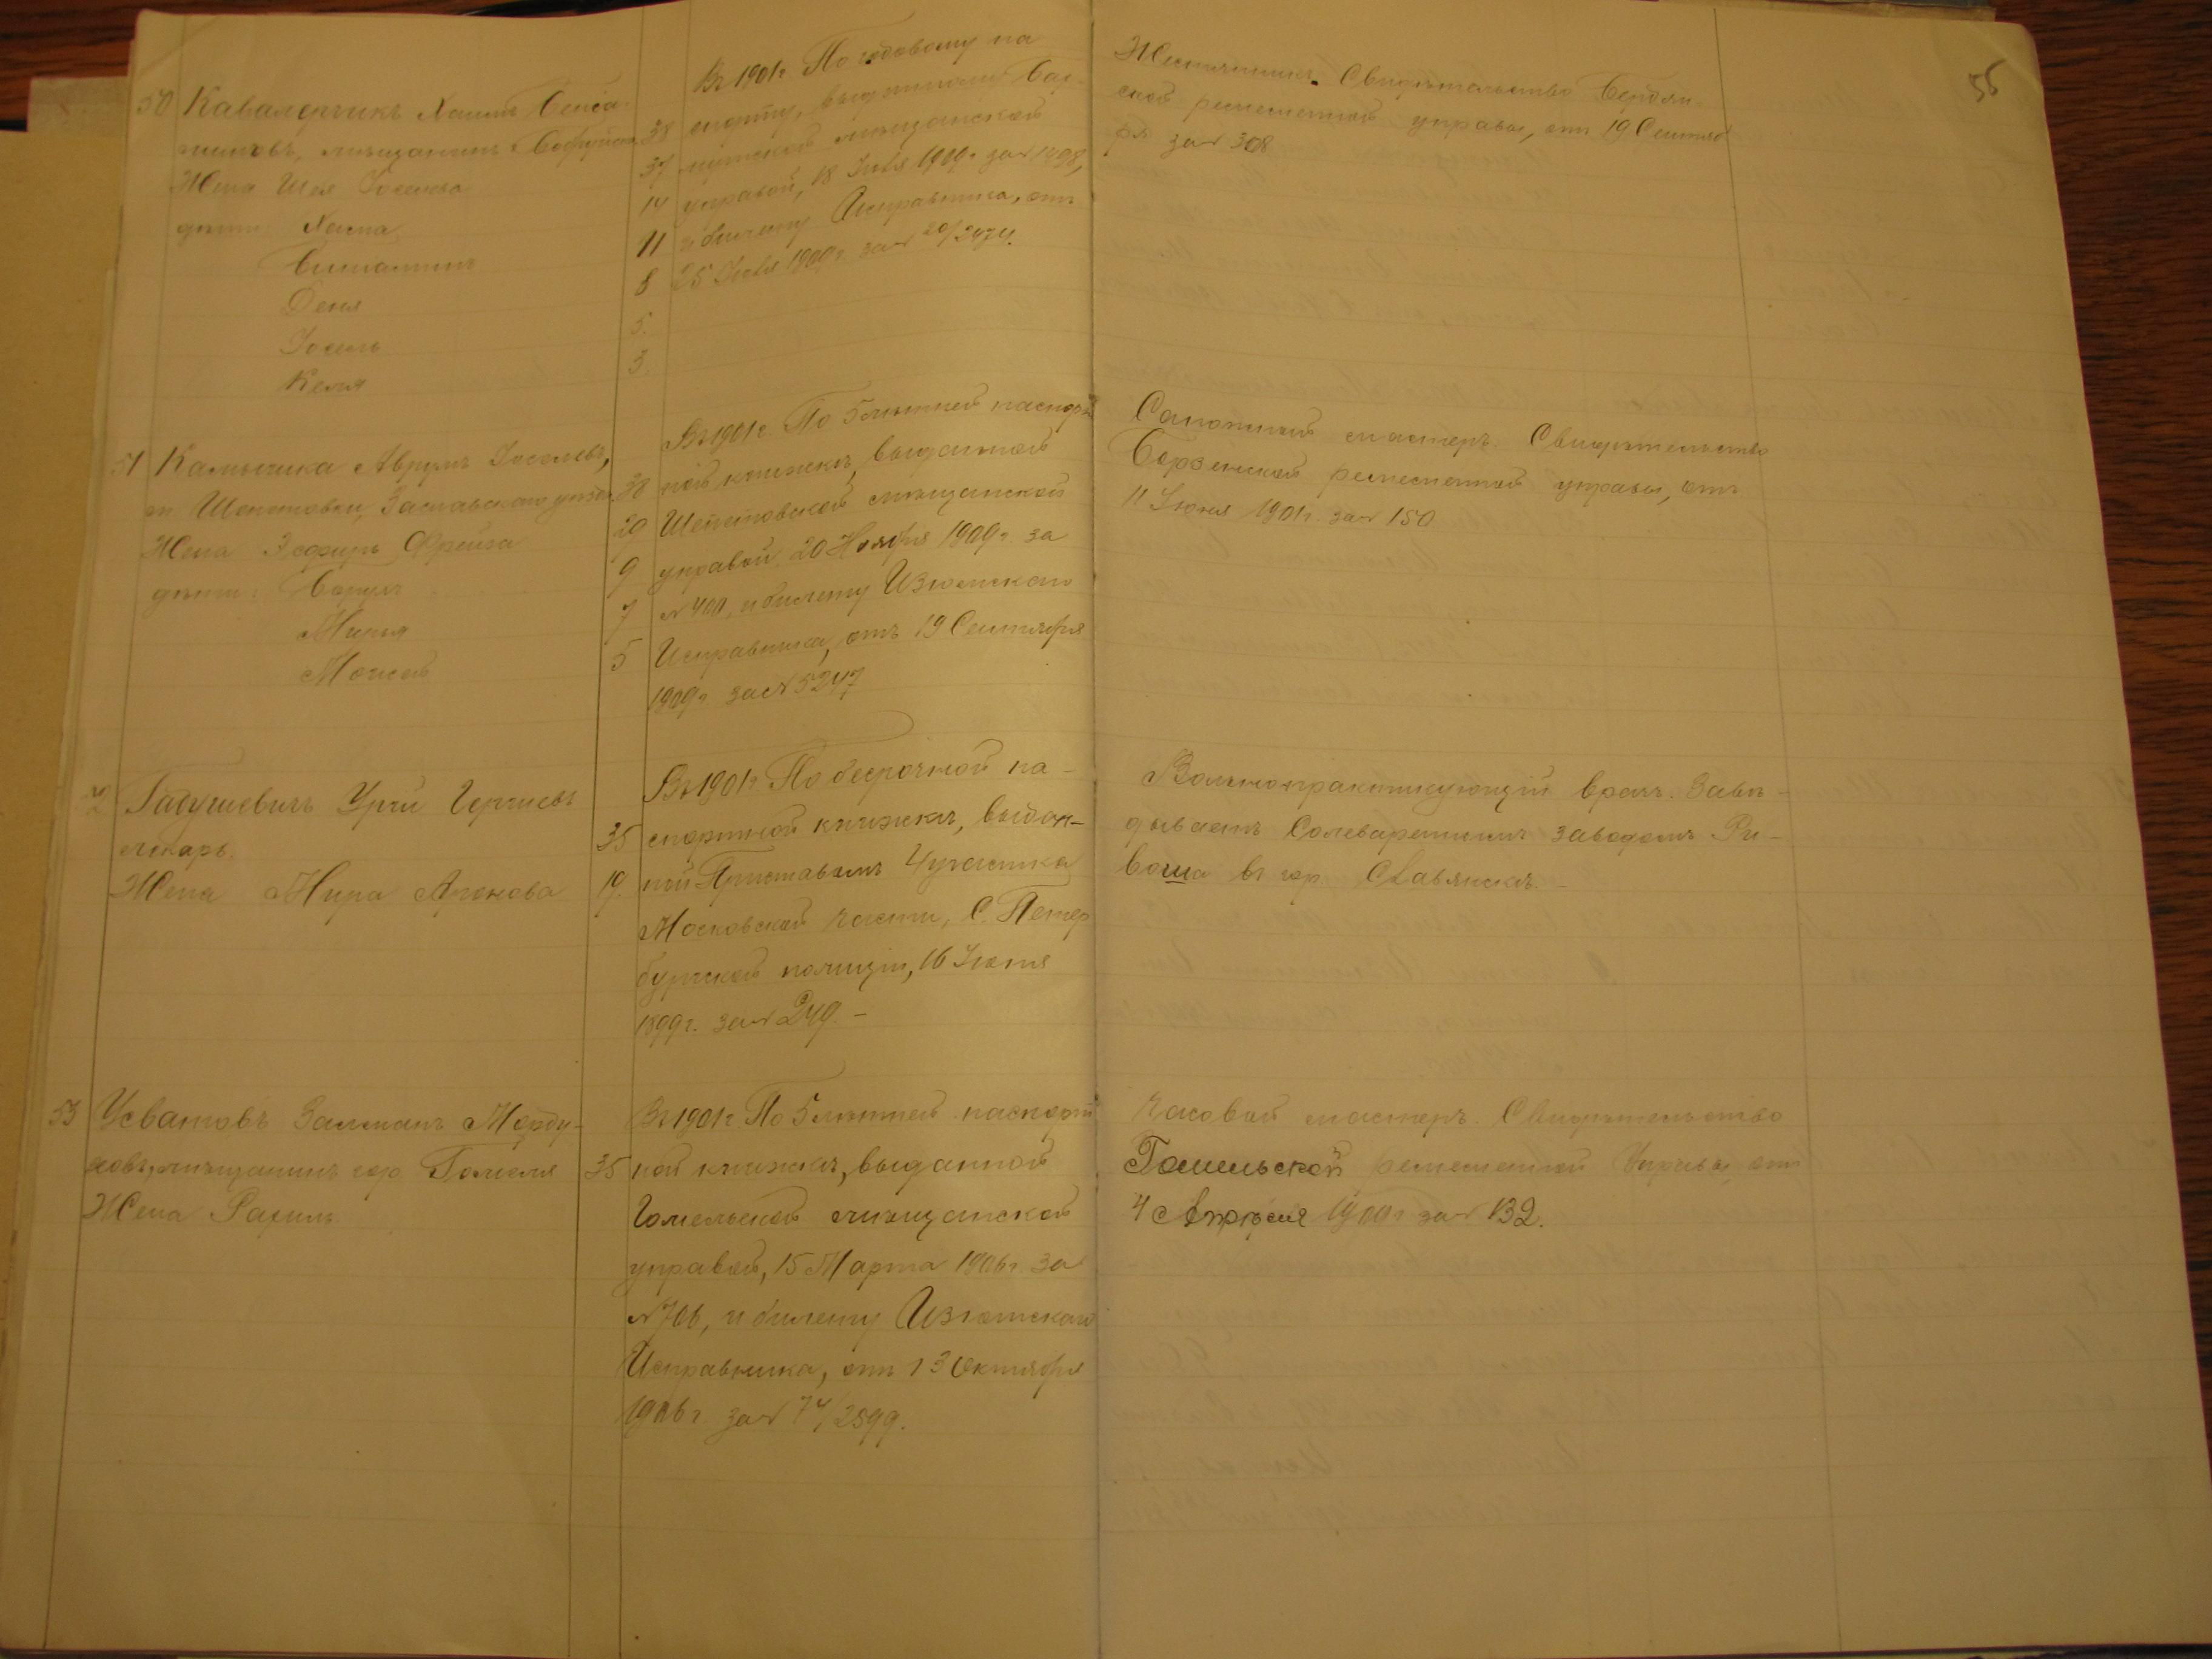 55
50 Кавалерчикъ Хаимъ Бенiа-
миновъ, мѣщанинъ
Жена Шея Іоселева
дѣти: Хасна
Бениаминъ
Деня
Іосель
Келя
38
37
14
11
8
5.
3.
Въ 1901г По годовому па
спорту, выданному
мѣщанской
управой, 18 Іюля 1909г за № 1498,
и билету Исправника, отъ
25 Іюля 1909г. за № 20/2474.
Жестянникъ. Свидѣтельство Бердян-
ской ремесленной управы, отъ 19 Сентяб
ря за № 308
51 Аврумъ Іоселевъ,
м Шепетовки, Заславскаго уѣзда
Жена Эсфирь Фрейга
дѣти: Борухъ
Минья
Моисей
38
29
9
7
5
Въ 1901г. По 5 лѣтней паспорт
ной книжкѣ, выданной
Шепетовской мѣщанской
управой, 20 Ноября 1909г за
№ 400, и билету Изюмскаго
Исправника, отъ 19 Сентября
1909г за № 5247
Сапожный мастеръ. Свидѣтельство
Борзенской ремесленной управы, отъ
11 Іюня 1901г. за № 150
52 Гадушевичъ Урій
лѣкарь.
Жена Мира Ароновна
35
19.
Въ 1901г По безсрочной па-
спортной книжкѣ, выдан-
ной Приставомъ 4 участка
Московской части, С. Петер
бургской полиціи, 16 Іюня
1899г. за № 249 -
Вольнопрактикующій врачъ. Завѣ-
дываетъ Солевареннымъ заводомъ Ри-
воша въ гор. Славянскѣ. -
53 Усватовъ Залманъ Морду-
ховъ, мѣщанинъ гор. Гомеля
Жена Рахиль
35
Въ 1901г По 5 лѣтней паспорт
ной книжкѣ, выданной
Гомельской мѣщанской
управой, 15 Марта 1906г. за
№ 706, и билету Изюмскаго
Исправника, отъ 13 Октября
1906г за № 74/2899.
Часовой мастеръ. Свидѣтельство
Гомельской ремесленной Управы, отъ
4 Апрѣля 1900г за № 132.